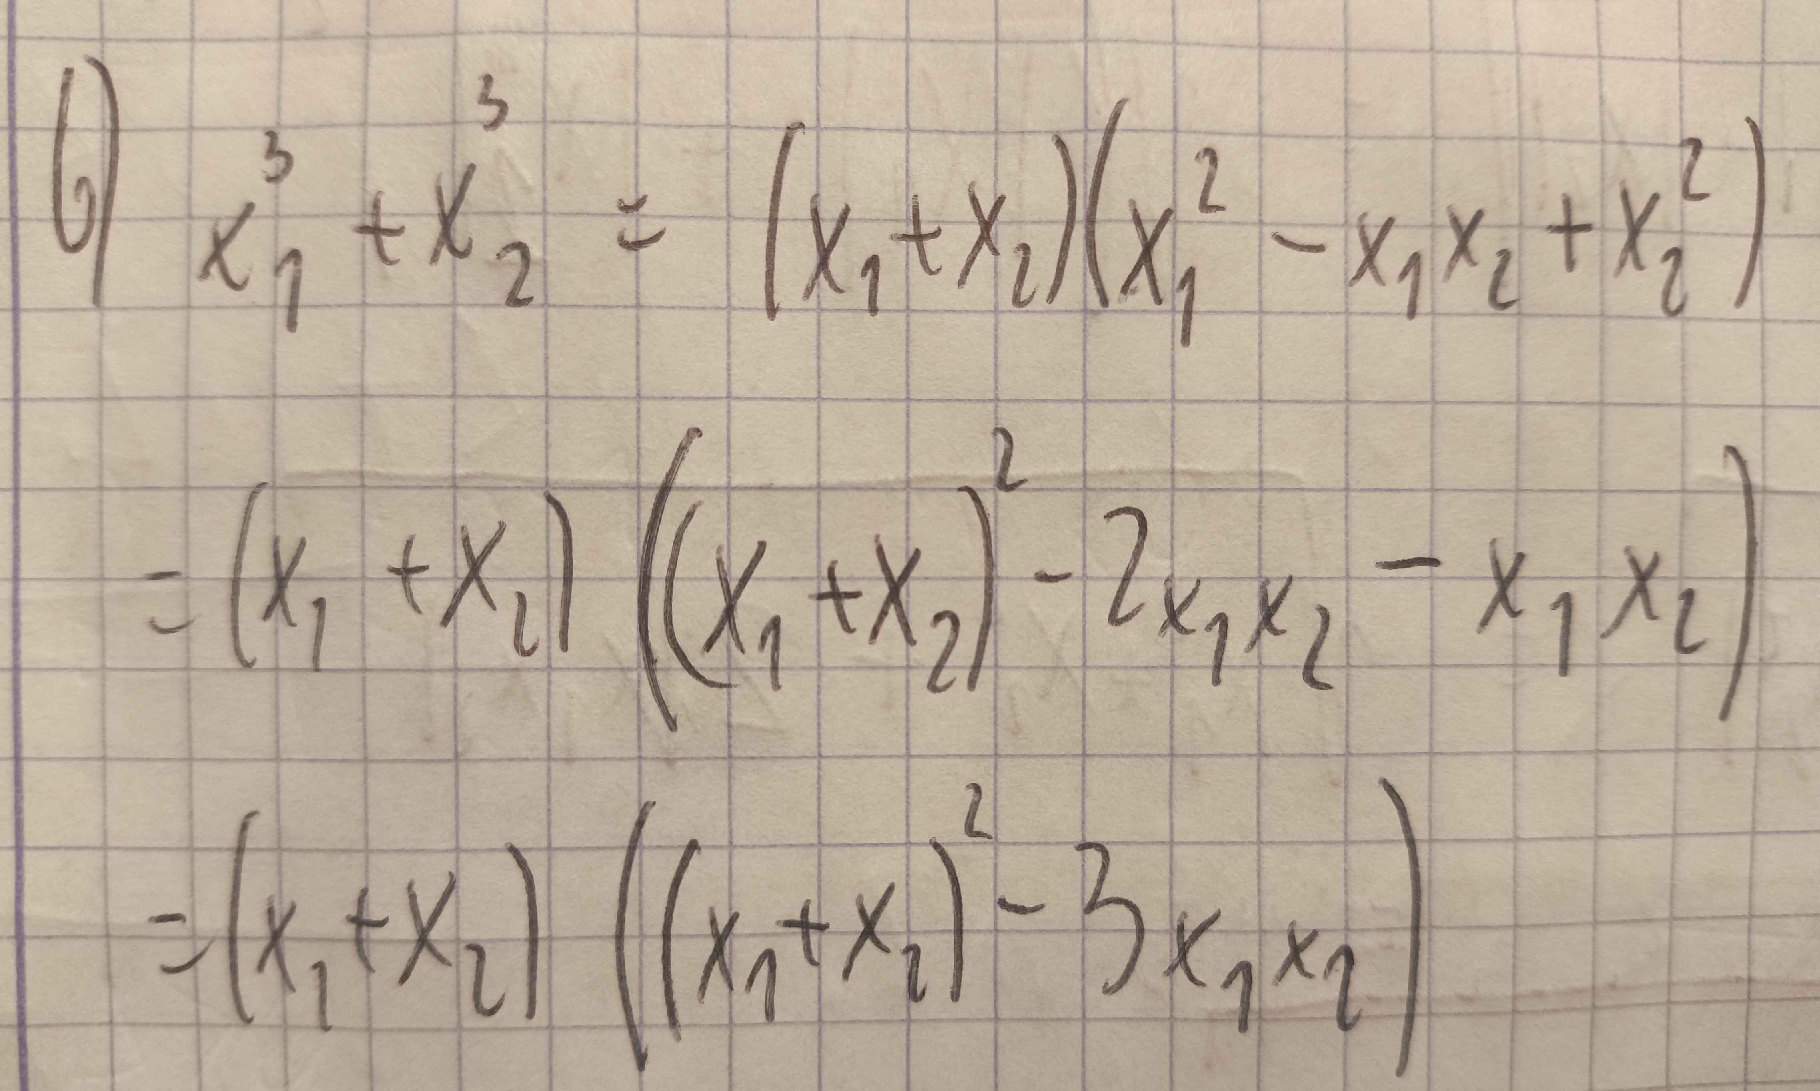 б) x₁³ + x₂³ = (x₁+x₂)(x₁² - x₁x₂ + x₂²)
= (x₁ + x₂) ((x₁+x₂)² - 2x₁x₂ - x₁x₂)
= (x₁+x₂) ((x₁+x₂)² - 3x₁x₂)